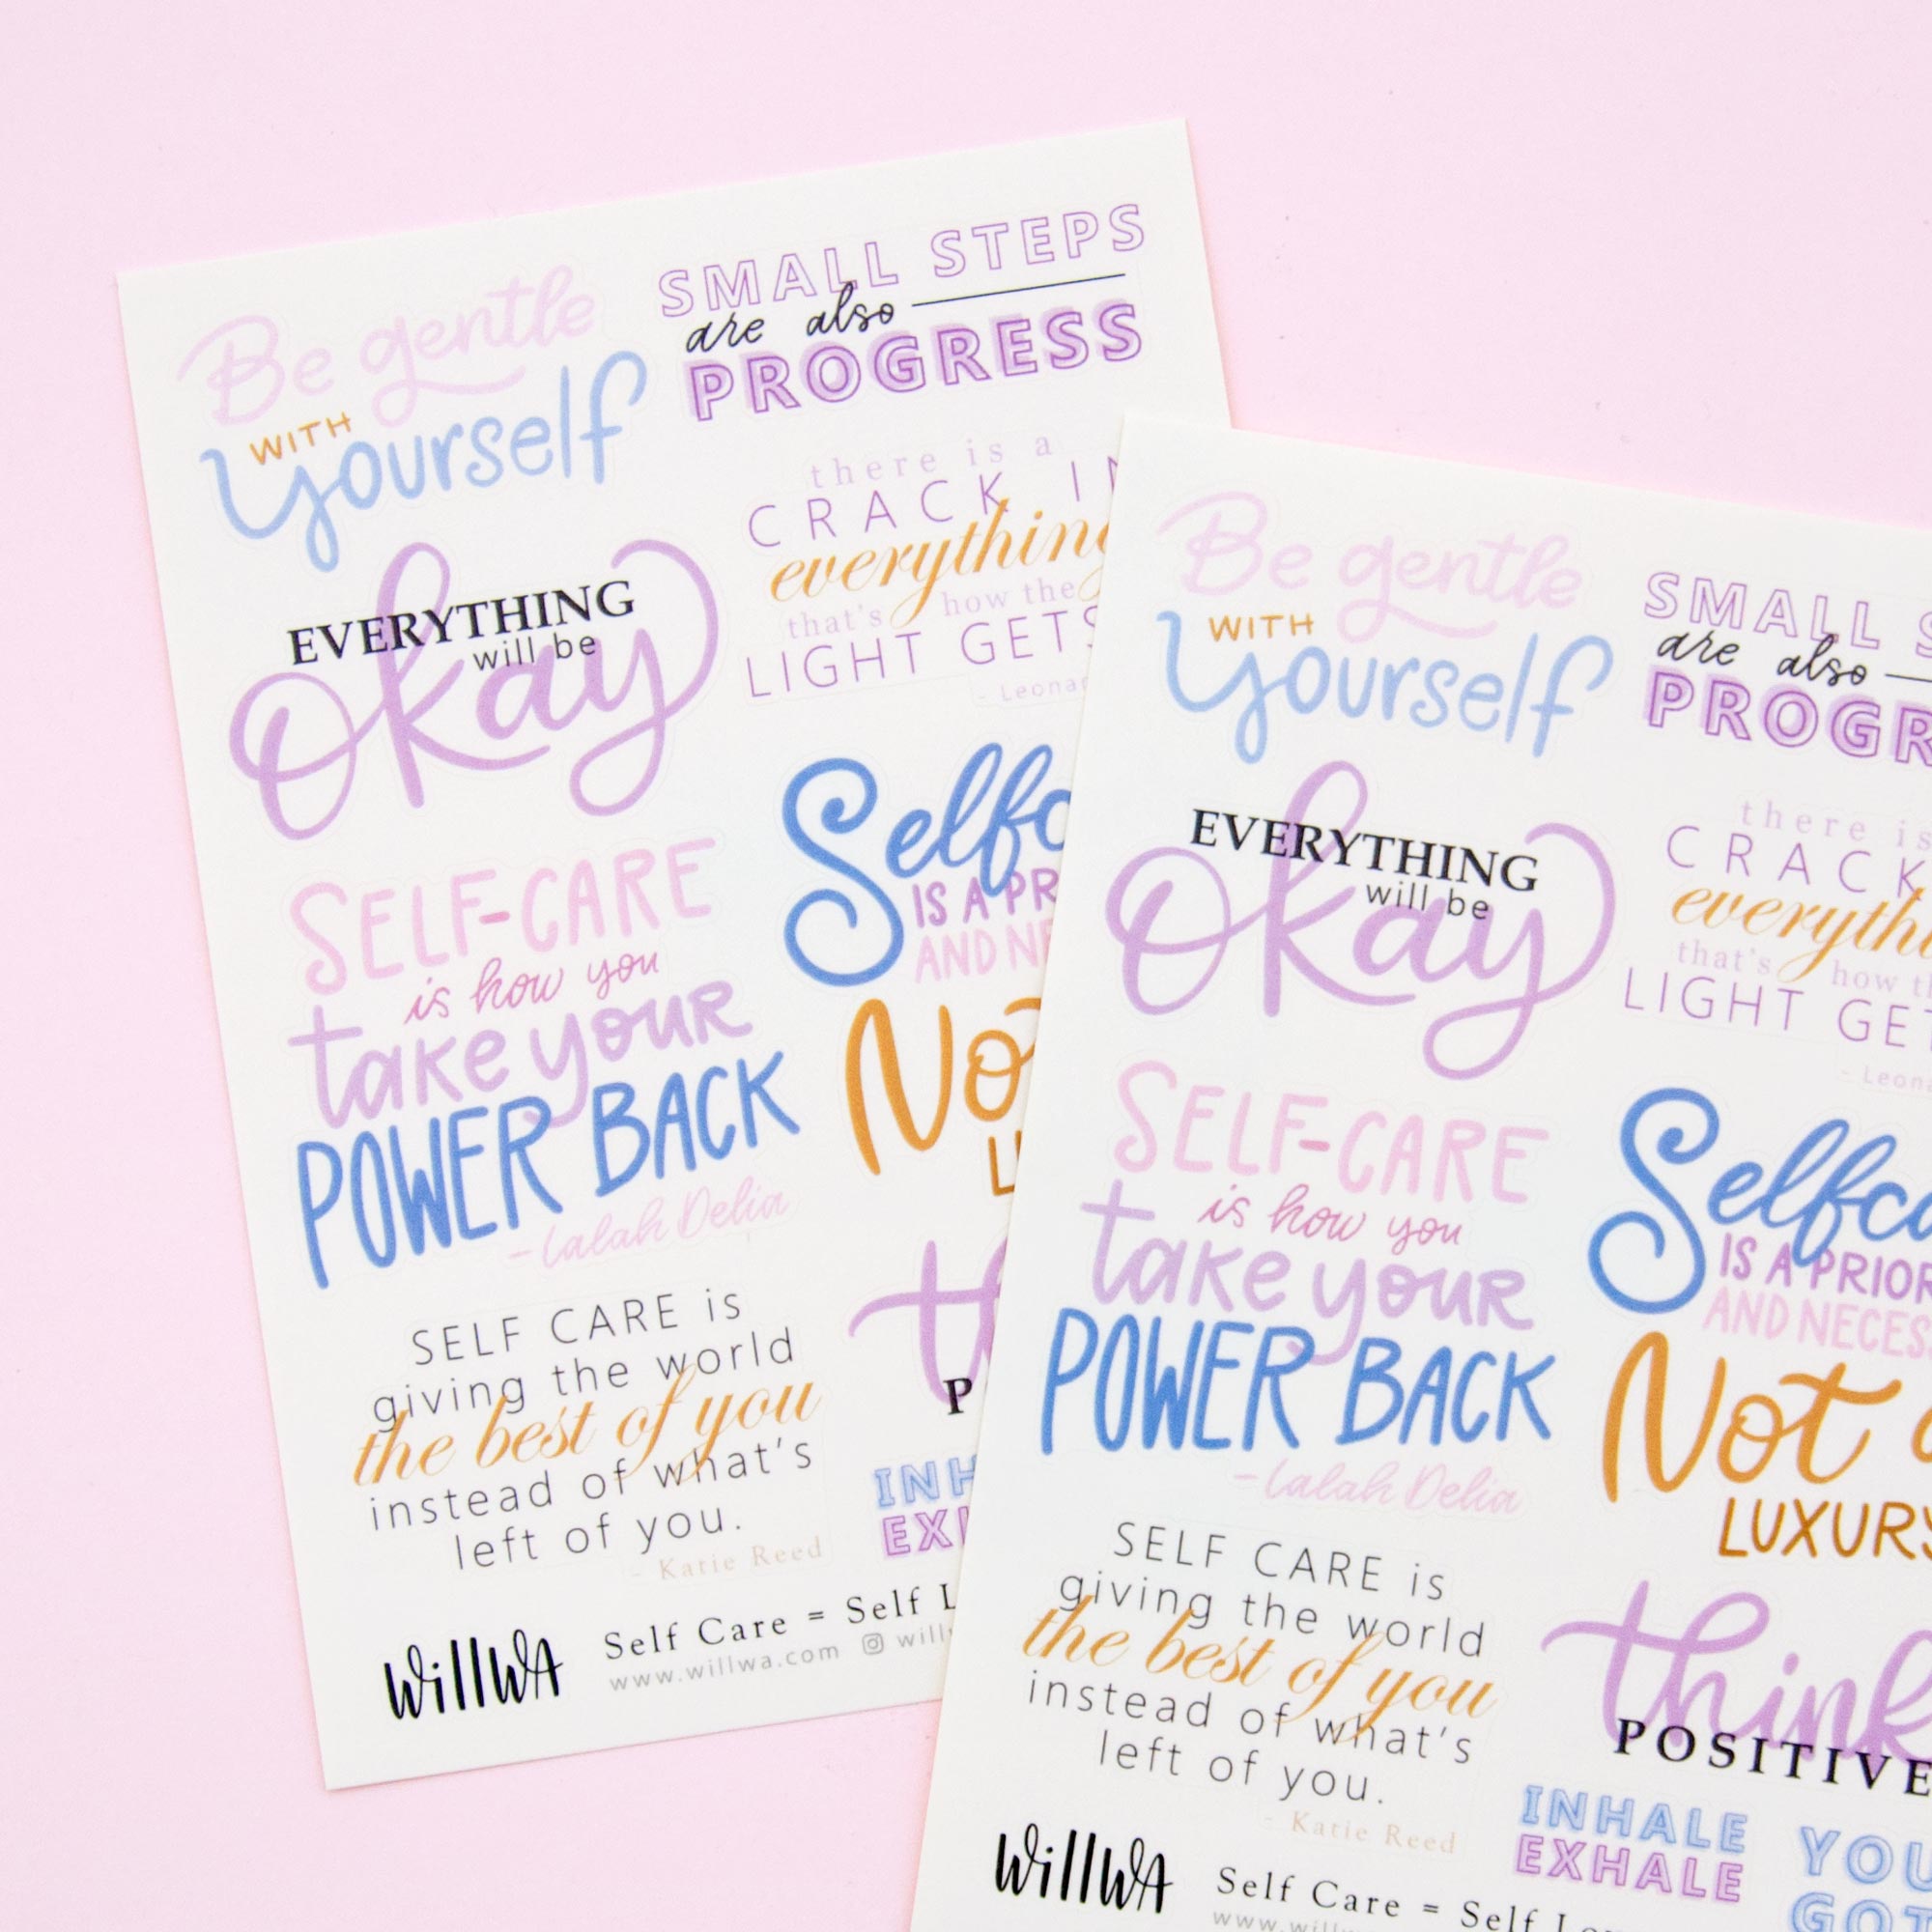 Be gentle
WITH
yourself
SMALL STEPS
are also
PROGRESS
there is a
CRACK IN
everything
that's how the
LIGHT GETS
EVERYTHING
will be
Okay
SELF-CARE
is how you
take your
POWER BACK
- Lalah Delia
Selfc
IS A PR
AND NE
Not
SELF CARE is
giving the world
the best of you
instead of what's
left of you.
- Katie Reed
P
INH
EXH
WillWA
Self Care = Self L
www.willwa.com
Be gentle
WITH
yourself
SMALL S
are also
PROGR
there is
CRACK
everythi
that's how th
LIGHT GET
- Leona
EVERYTHING
will be
Okay
SELF-CARE
is how you
take your
POWER BACK
- Lalah Delia
Selfca
IS A PRIOR
AND NECES
Not
LUXURY
SELF CARE is
giving the world
the best of you
instead of what's
left of you.
- Katie Reed
think
POSITIVE
INHALE
EXHALE
YOU
GOT
WillWA
Self Care = Self Lo